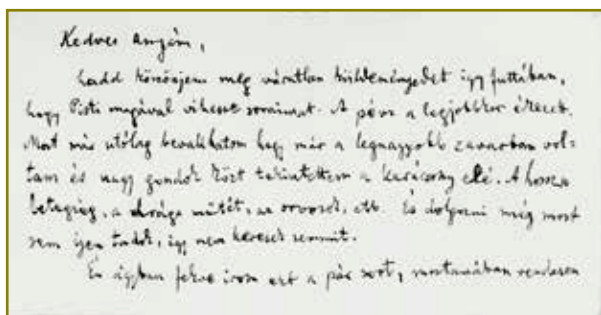 Kedves anyám,
hadd köszönjem meg váratlan küldeményedet így futtában,
hogy Pisti magával vihesse soraimat. A pénz a legjobbkor érkezett.
Most már utólag bevallhatom hogy már a legnagyobb zavarban vol-
tam és nagy gondok közt tekintettem a karácsony elé. A hosszu
betegség, a drága műtét, az orvosok, stb. És dolgozni még most
sem igen tudok, így nem keresek semmit.
Én ágyban fekve irom ezt a pár sort, mostanában rendesen